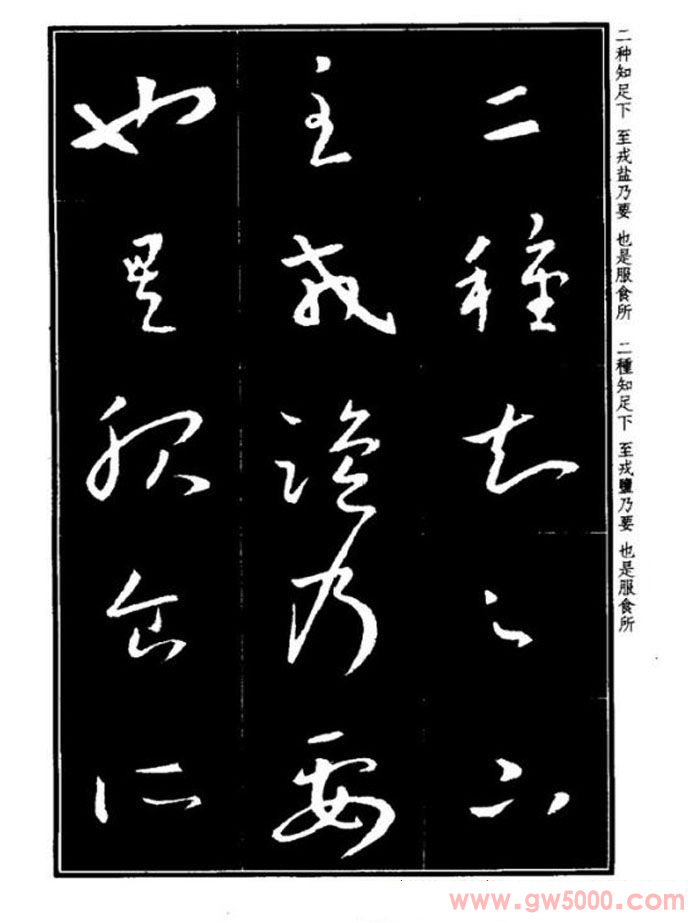 二種知足下
至戎鹽乃要
也是服食所
二种知足下 至戎盐乃要 也是服食所
二種知足下 至戎鹽乃要 也是服食所
www.gw5000.com